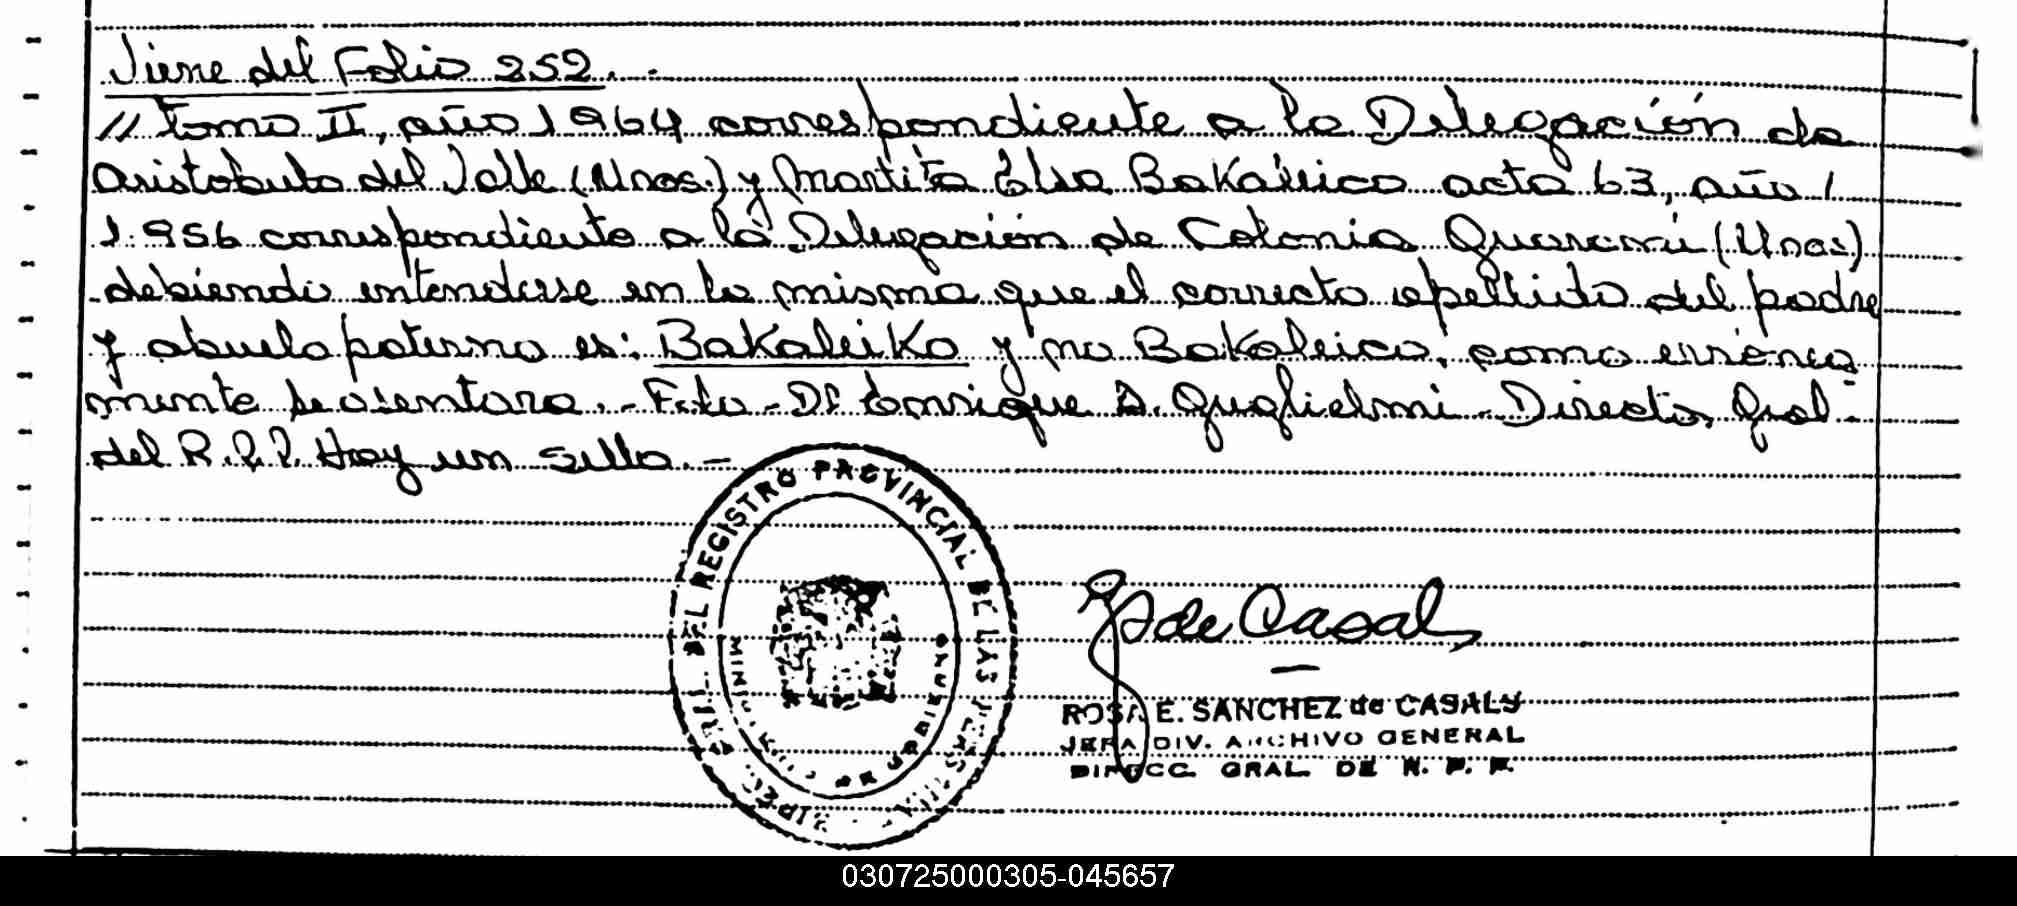 Viene del Folio 252.-
// tomo II, año 1964 correspondiente a la Delegación de
Aristobulo del Valle (Mnes.) y Martita Elsa Bakaleico acta 63, año /
1.956 correspondiente a la Delegación de Colonia Guaraní (Mnes.)
debiendo entenderse en la misma que el correcto apellido del padre
y abuelo paterno es: Bakaleiko y no Bakaleico, como erronea
mente se asentara.- Fdo - Dr Enrique A. Guglielmi - Director Gral.-
del R.P.P. Hay un sello.-
DEL REGISTRO PROVINCIAL DE LAS PERSONAS
DE GOBIERNO
de Casals
ROSA E. SANCHEZ de CASALS
JEFA DIV. ARCHIVO GENERAL
DIRECC. GRAL. DE R. P. P.
030725000305-045657